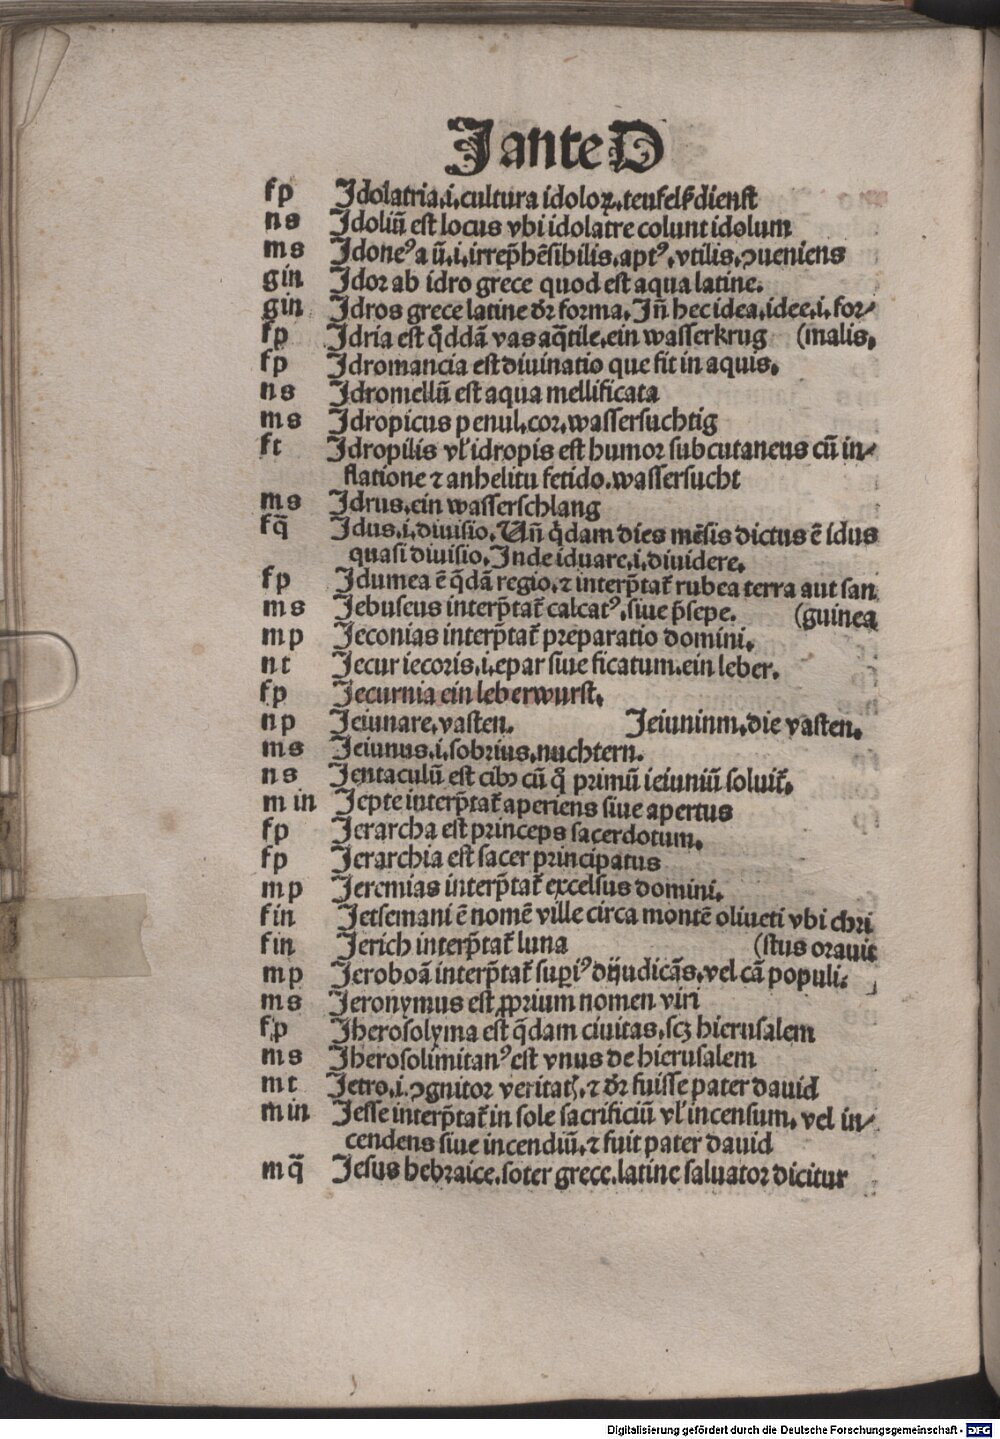 J ante D
fp Jdolatria.i.cultura idoloꝝ.teufelßdienst
ns Jdoliū est locus vbi idolatre colunt idolum
ms Jdoneꝰ a ū.i.irrep̄hēsibilis.aptꝰ.vtilis.ꝯueniens
gin Jdor ab idro grece quod est aqua latine.
gin Jdros grece latine dr̄ forma. Jn̄ hec idea.idee.i.for⸗
fp Jdria est q̄ddā vas aq̄tile.ein wasserkrug (malis.
fp Jdromancia est diuinatio que fit in aquis.
ns Jdromellū est aqua mellificata
ms Jdropicus penul.cor.wassersuchtig
ft Jdropilis vl̓ idropis est humor subcutaneus cū in⸗
flatione ⁊ anhelitu fetido.wassersucht
ms Jdrus.ein wasserschlang
fq̄ Jdus.i.diuisio. Vn̄ q̄dam dies mēsis dictus ē idus
quasi diuisio. Jnde iduare.i.diuidere.
fp Jdumea ē q̄dā regio.⁊ interp̄tat̄ rubea terra aut san
ms Jebuseus interp̄tat̄ calcatꝰ.siue p̄sepe. (guinea
mp Jeconias interp̄tat̄ preparatio domini.
nt Jecur iecoris.i.epar siue ficatum.ein leber.
fp Jecurnia ein leberwurst.
np Jeiunare.vasten. Jeiuninm.die vasten.
ms Jeiunus.i.sobrius.nuchtern.
ns Jentaculū est cibꝰ cū qͦ primū ieiuniū soluit̄.
min Jepte interp̄tat̄ aperiens siue apertus
fp Jerarcha est princeps sacerdotum.
fp Jerarchia est sacer principatus
mp Jeremias interp̄tat̄ excelsus domini.
fin Jetsemani ē nomē ville circa montē oliueti vbi chri
fin Jerich interp̄tat̄ luna (stus orauit
mp Jeroboā interp̄tat̄ suꝑiꝰ dijudicās.vel cā populi.
ms Jeronymus est ꝓprium nomen viri
fp Jherosolyma est q̄dam ciuitas.scꝫ hierusalem
ms Jherosolimitanꝰ est vnus de hierusalem
mt Jetro.i.ꝯgnitor veritatꝭ.⁊ dr̄ fuisse pater dauid
min Jesse interp̄tat̄ in sole sacrificiū vl̓ incensum.vel in⸗
cendens siue incendiū.⁊ fuit pater dauid
mq̄ Jesus hebraice.soter grece.latine saluator dicitur
Digitalisierung gefördert durch die Deutsche Forschungsgemeinschaft - DFG